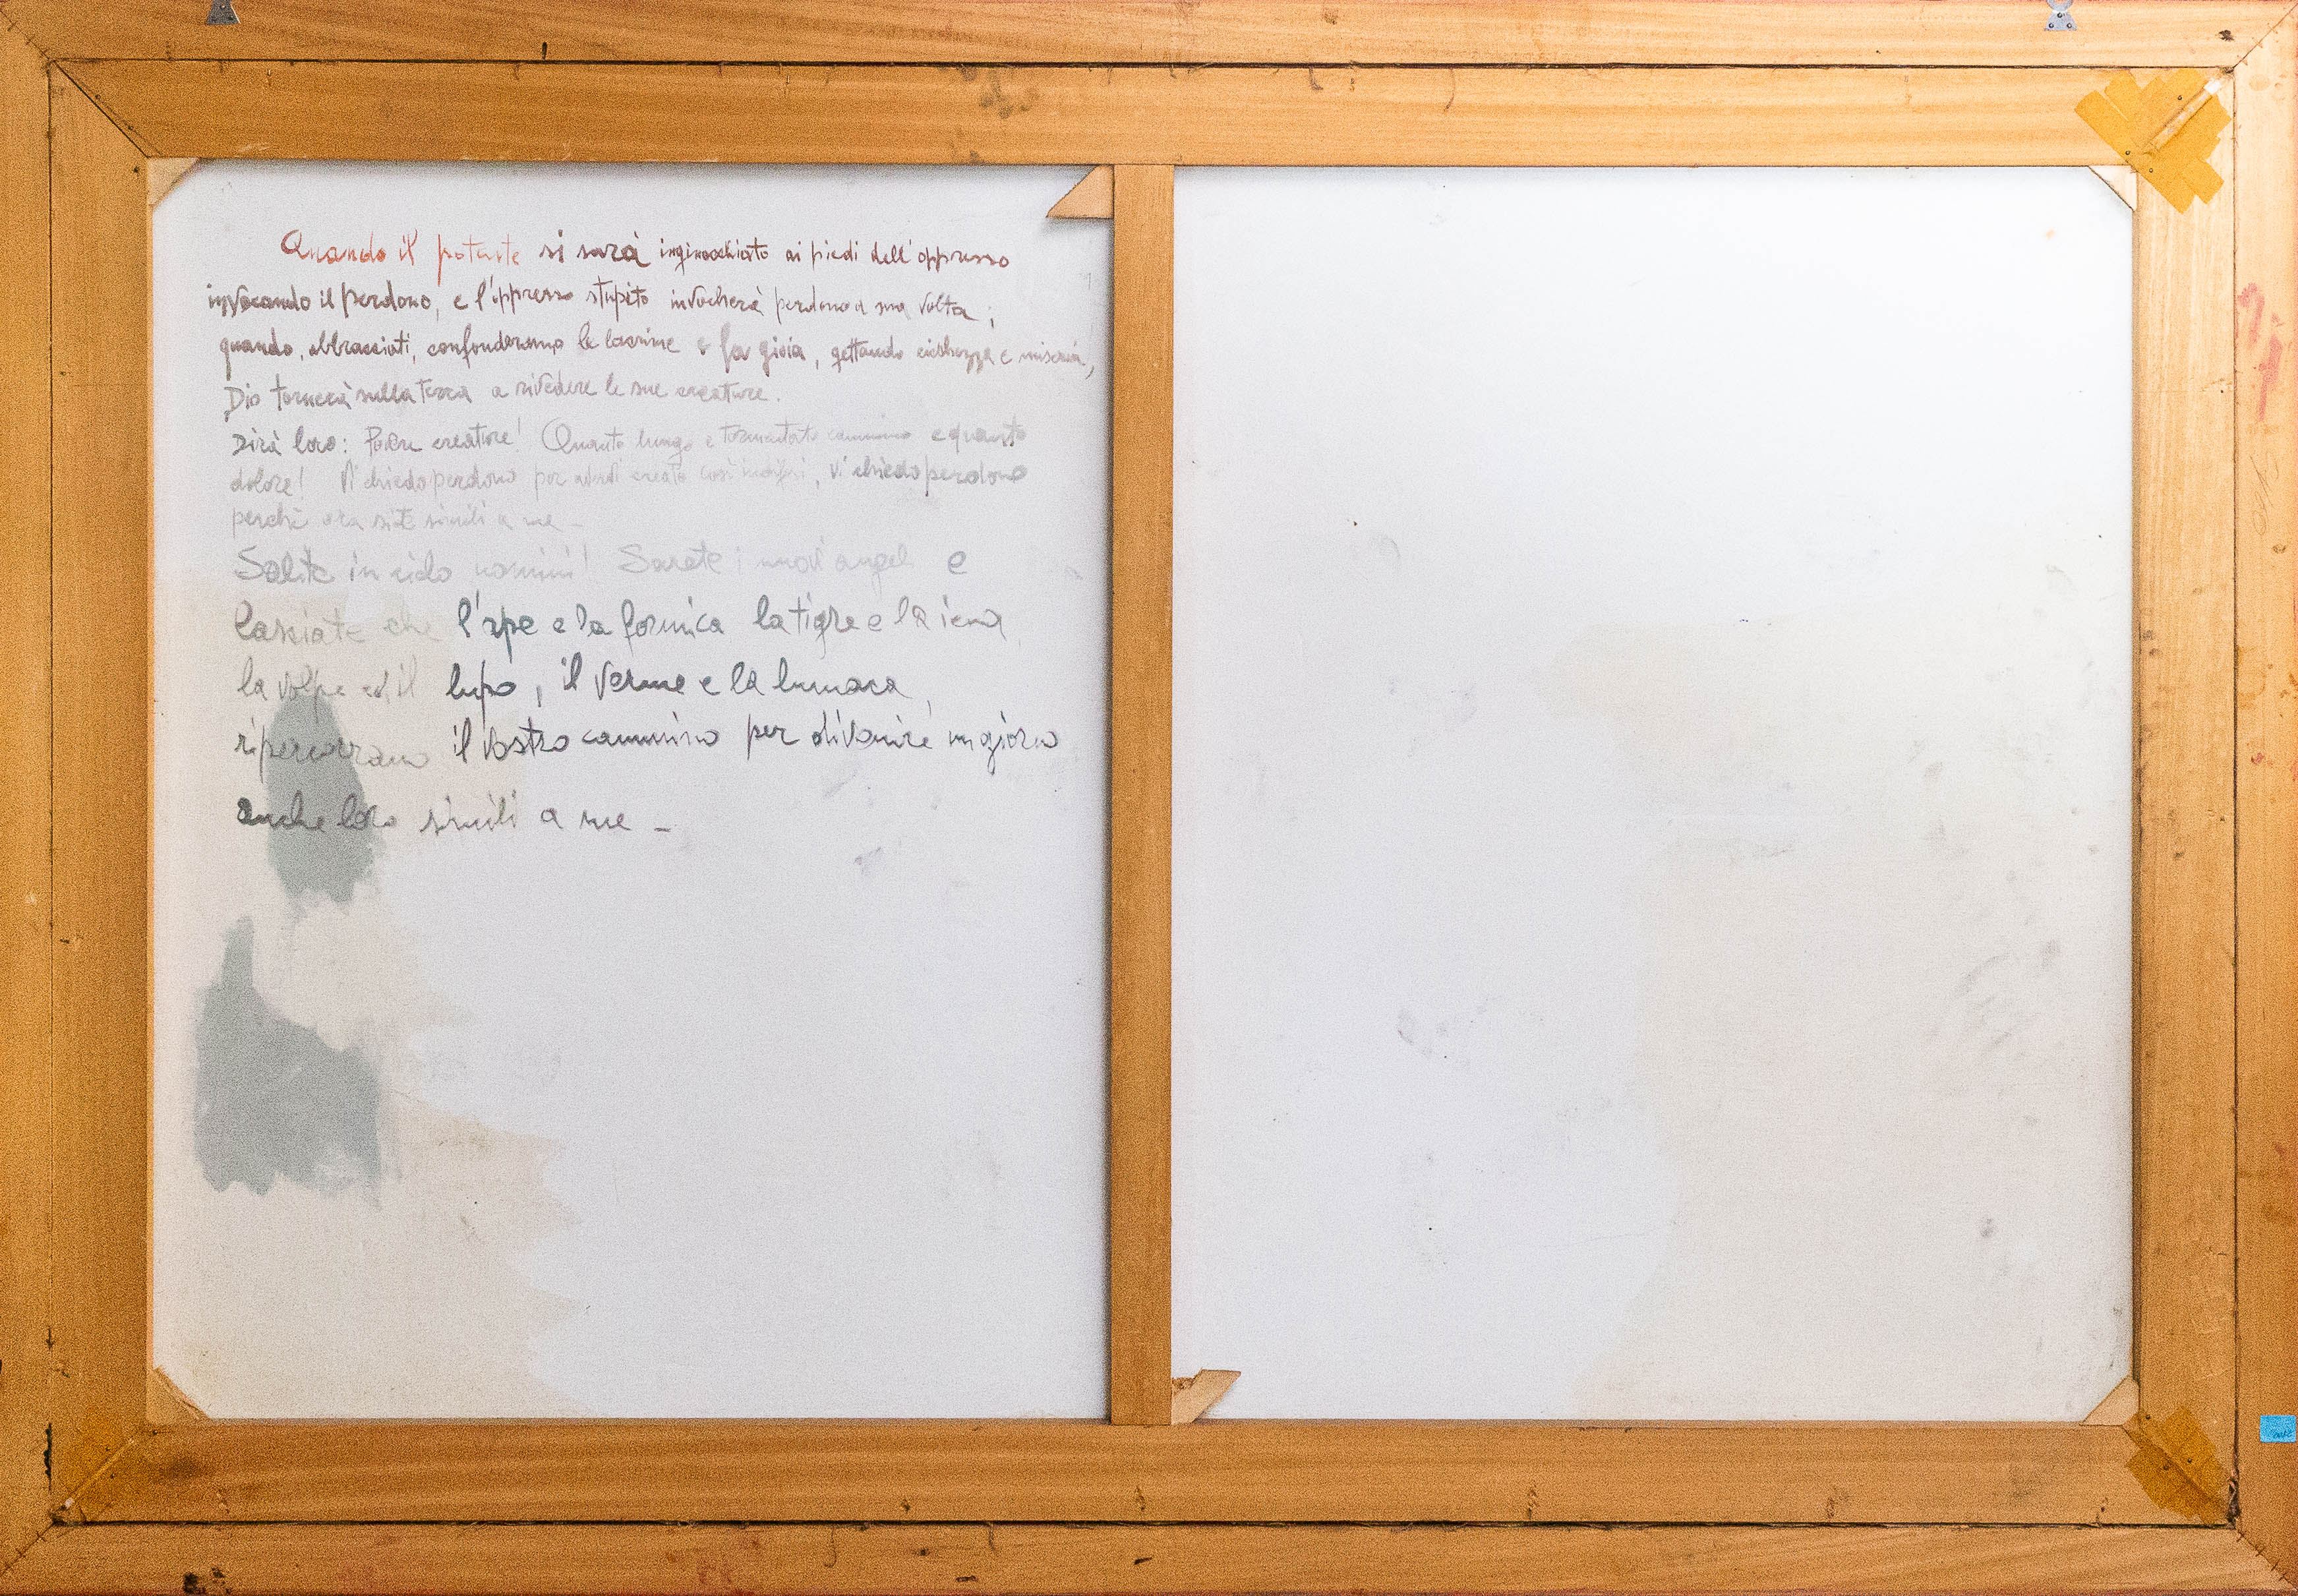 Quando il potente si sarà inginocchiato ai piedi dell'oppresso
invocando il perdono, e l'oppresso stupito invocherà perdono a sua volta;
quando, abbracciati, confonderanno le lacrime e la gioia, gettando ricchezza e miseria,
Dio tornerà sulla terra a rivedere le sue creature.
Dirà loro: Povere creature! Quanto lungo e tormentato cammino e quanto
dolore! Vi chiedo perdono per avervi creato così, vi chiedo perdono
perché ora siete simili a me -
Salite in cielo uomini! Sarete i nuovi angeli e
lasciate che l'ape e la formica la tigre e la iena
la volpe ed il lupo, il verme e la lumaca,
ripercorrano il vostro cammino per divenire un giorno
anche loro simili a me -